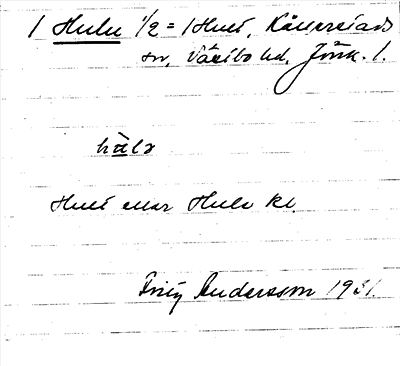 1 Hulu 1/2 = 1 Hult, Källeryds
sn, Västbo hd, Jönk. l.
hᴀlᴀ
Hult eller Hulu kl.
Fritz Andersson 1931